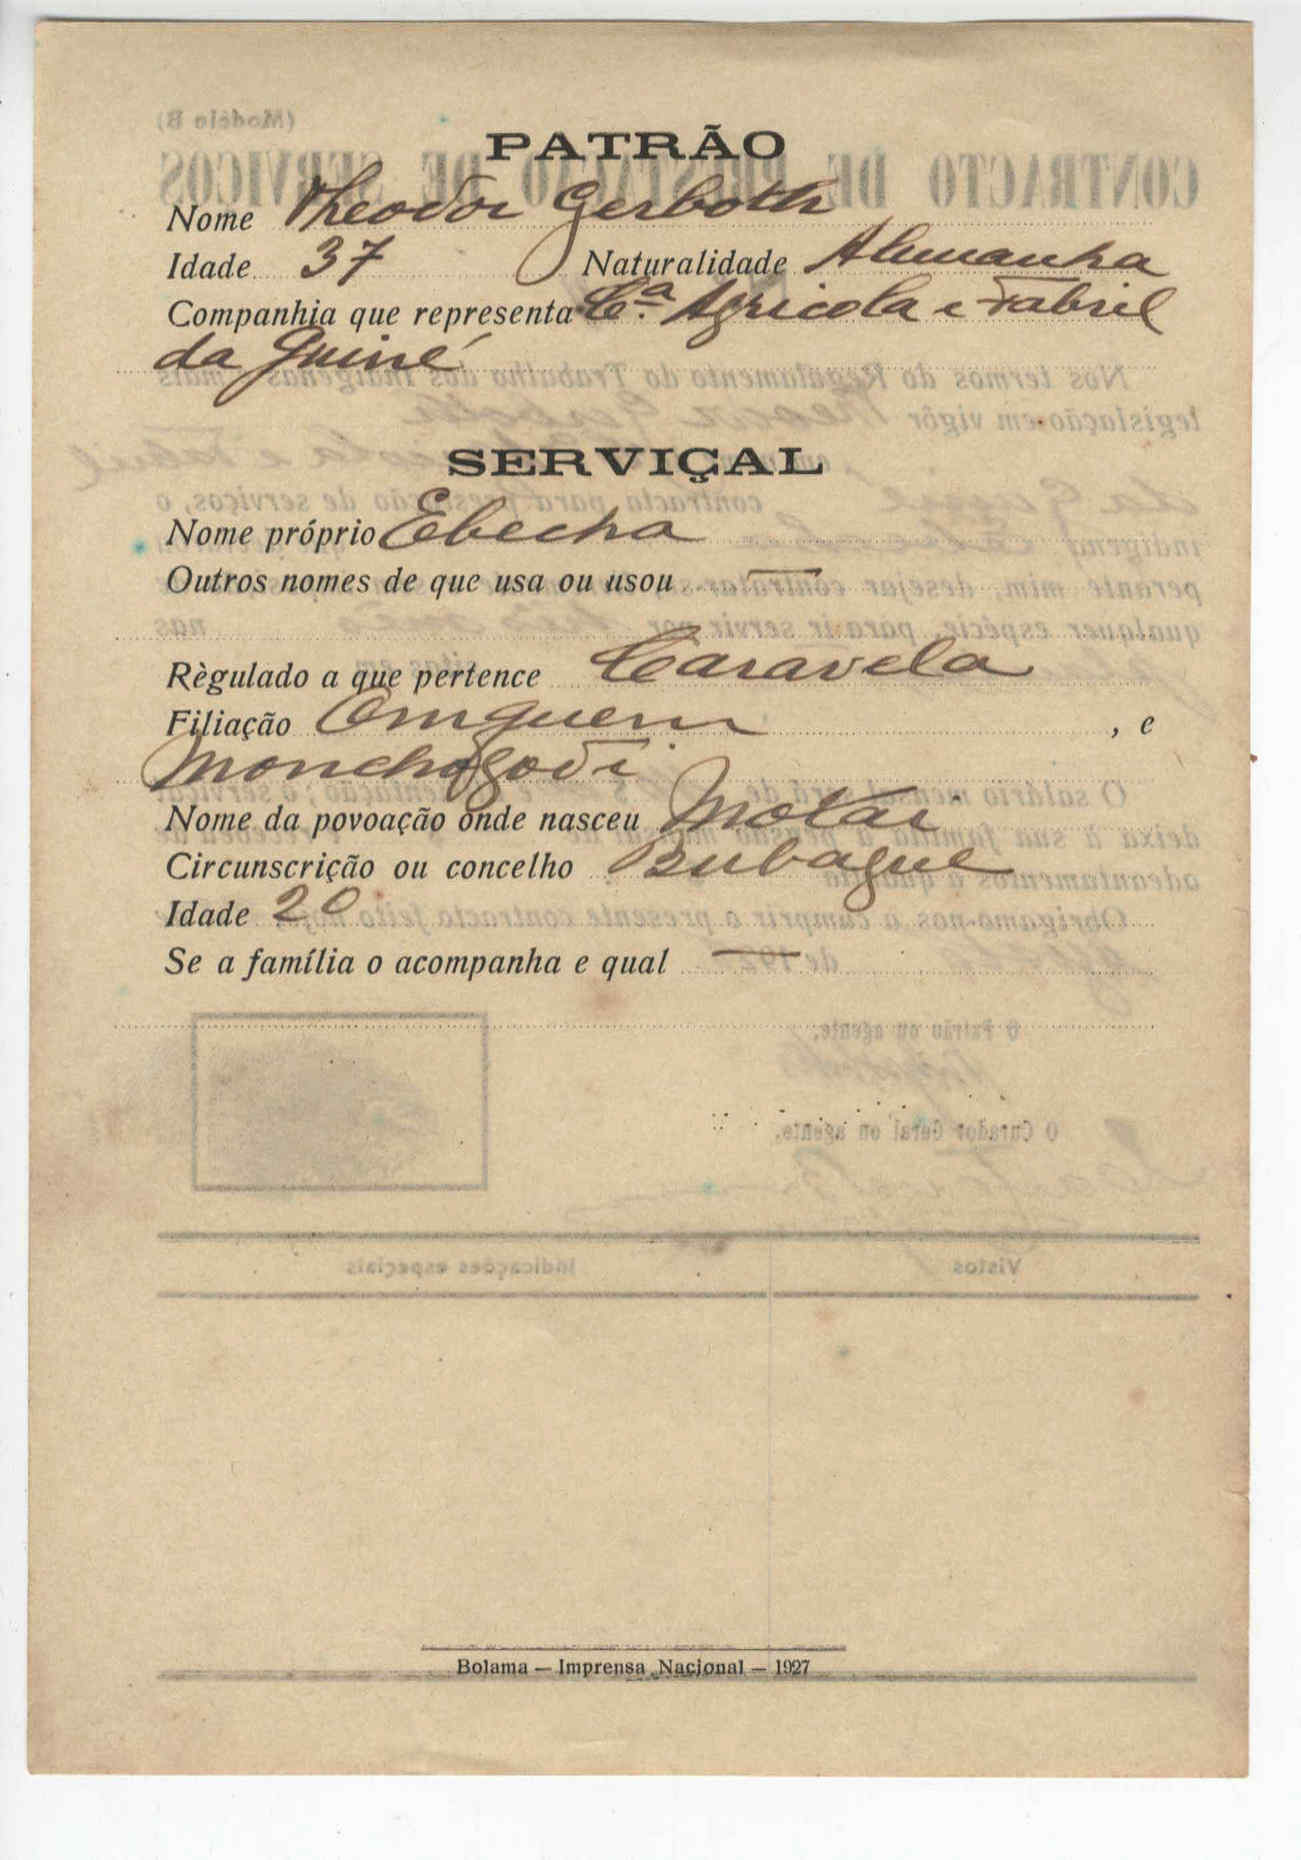 PATRÃO
Nome Theodor Gerboth
Idade 37 Naturalidade Alemanha
Companhia que representa Cª. Agricola e Fabril
da Guiné
SERVIÇAL
Nome próprio Ebecha
Outros nomes de que usa ou usou —
Règulado a que pertence Caravela
Filiação Omguem , e
Monchogodi
Nome da povoação onde nasceu Motai
Circunscrição ou concelho Bubaque
Idade 20
Se a família o acompanha e qual —
Bolama — Imprensa Nacional — 1927